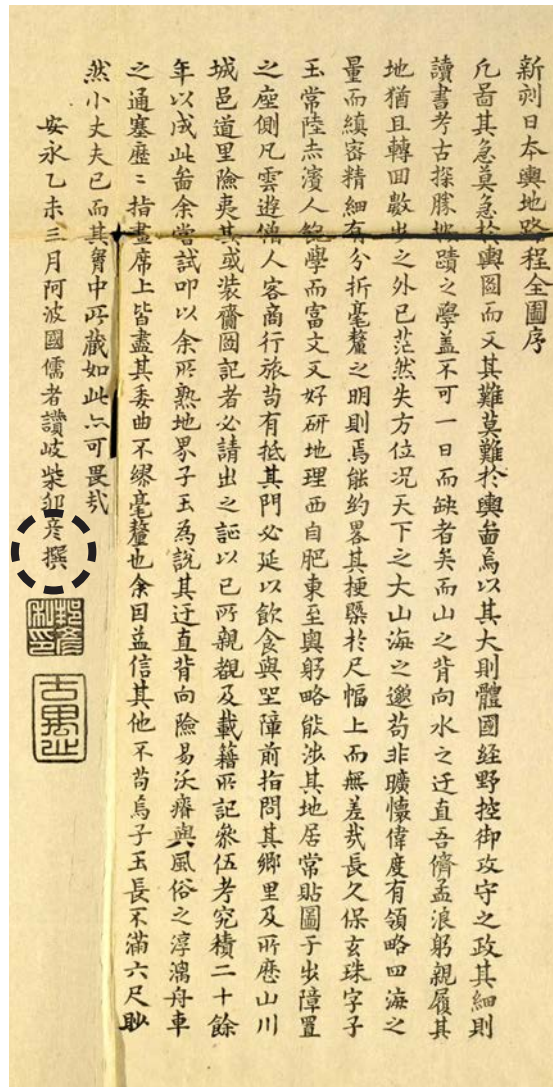 新刻日本輿地路程全圖序
凢啚其急莫急於輿圖而又其難莫難於輿啚焉以其大則體國経野控御攻守之政其細則
讀書考古探勝摉蹟之學盖不可一日而缺者矣而山之背向水之迂直吾儕孟浪躬親履其
地猶且轉回數歩之外已茫然失方位況天下之大山海之邈苟非曠懷偉度有領略四海之
量而縝密精細有分折毫釐之明則焉能約畧其梗槩於尺幅上而無差㢤長久保玄珠字子
玉常陸赤濱人飽學而富文又好研地理西自肥東至奥躬略能渉其地居常貼圖于出障置
之座側凡雲遊僧人客商行旅苟有抵其門必延以飲食與坐障前指問其郷里及所歴山川
城邑道里險夷其或装齎圖記者必請出之証以已所親覩及載籍所記叅伍考究積二十餘
年以成此啚余嘗試叩以余所熟地界子玉為說其迂直背向險易沃瘠與風俗之淳漓舟車
之通塞歴〻指畫席上皆盡其委曲不繆毫釐也余因益信其他不苟焉子玉長不滿六尺眇
然小丈夫已而其胷中所藏如此亦可畏㢤
安永乙未三月阿波國儒者讃岐柴卯彦撰
邦彦